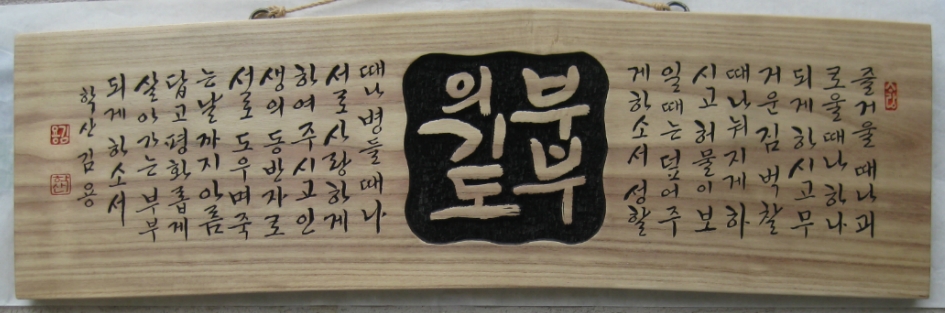 즐거울때나괴
로울때나하나
되게하시고무
거운짐벅찰
때나눠지게하
시고허물이보
일때는덮어주
게하소서 성할
부부
의기도
때나병들때나
서로사랑하게
하여주시고인
생의동반자로
서로도우며죽
는날까지아름
답고평화롭게
살아가는부부
되게하소서
학산김용